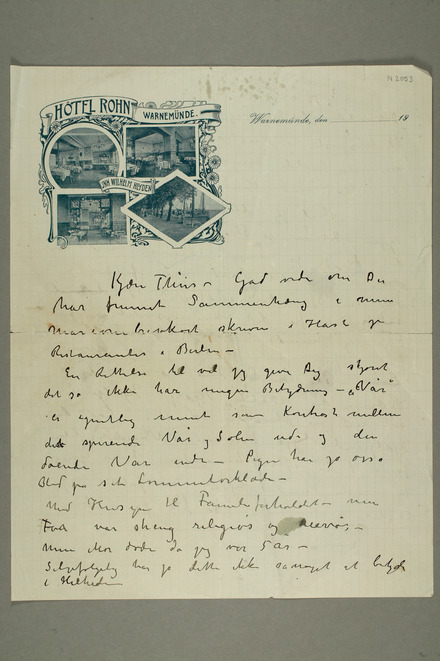 N 2053
HÔTEL ROHN
WARNEMÜNDE.
INH. WILHELM HEYDEN
Warnemünde, den 19
Kjære Thiis – Gad vide om Du
har fundet Sammenhæng i min
skreven i Hast
Restauranter i Berlin –
En til vil jeg give Dig skjønt
det jo ikke har nogen Betydning – „Vår"
er egentlig ment som Kontrast mellem
det spirende Vår og Solen ude og den
døende Vår inde – Pigen har jo også
Blod på sit Lommetørklæde –
Med Hensyn til Familieforholdet – min
Far var streng religiøs og nervøs –
min Mor døde da jeg var 5 år –
Selvfølgelig har jo dette ikke så meget at betyde
i Helheden